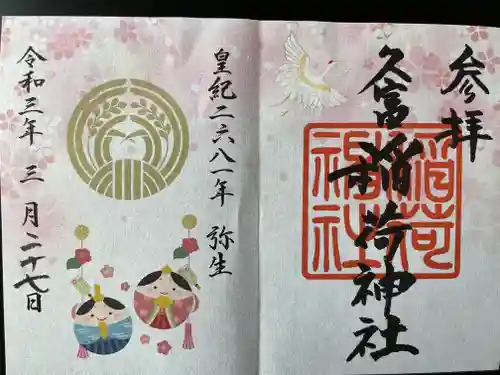 参拝
久富稲荷神社
稲荷
神社
皇紀二六八一年 弥生
令和三年 三月二十七日